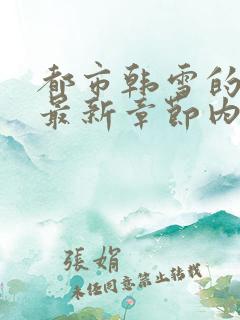 都市韩雪的
最新章节内
張娟
未经同意禁止转载